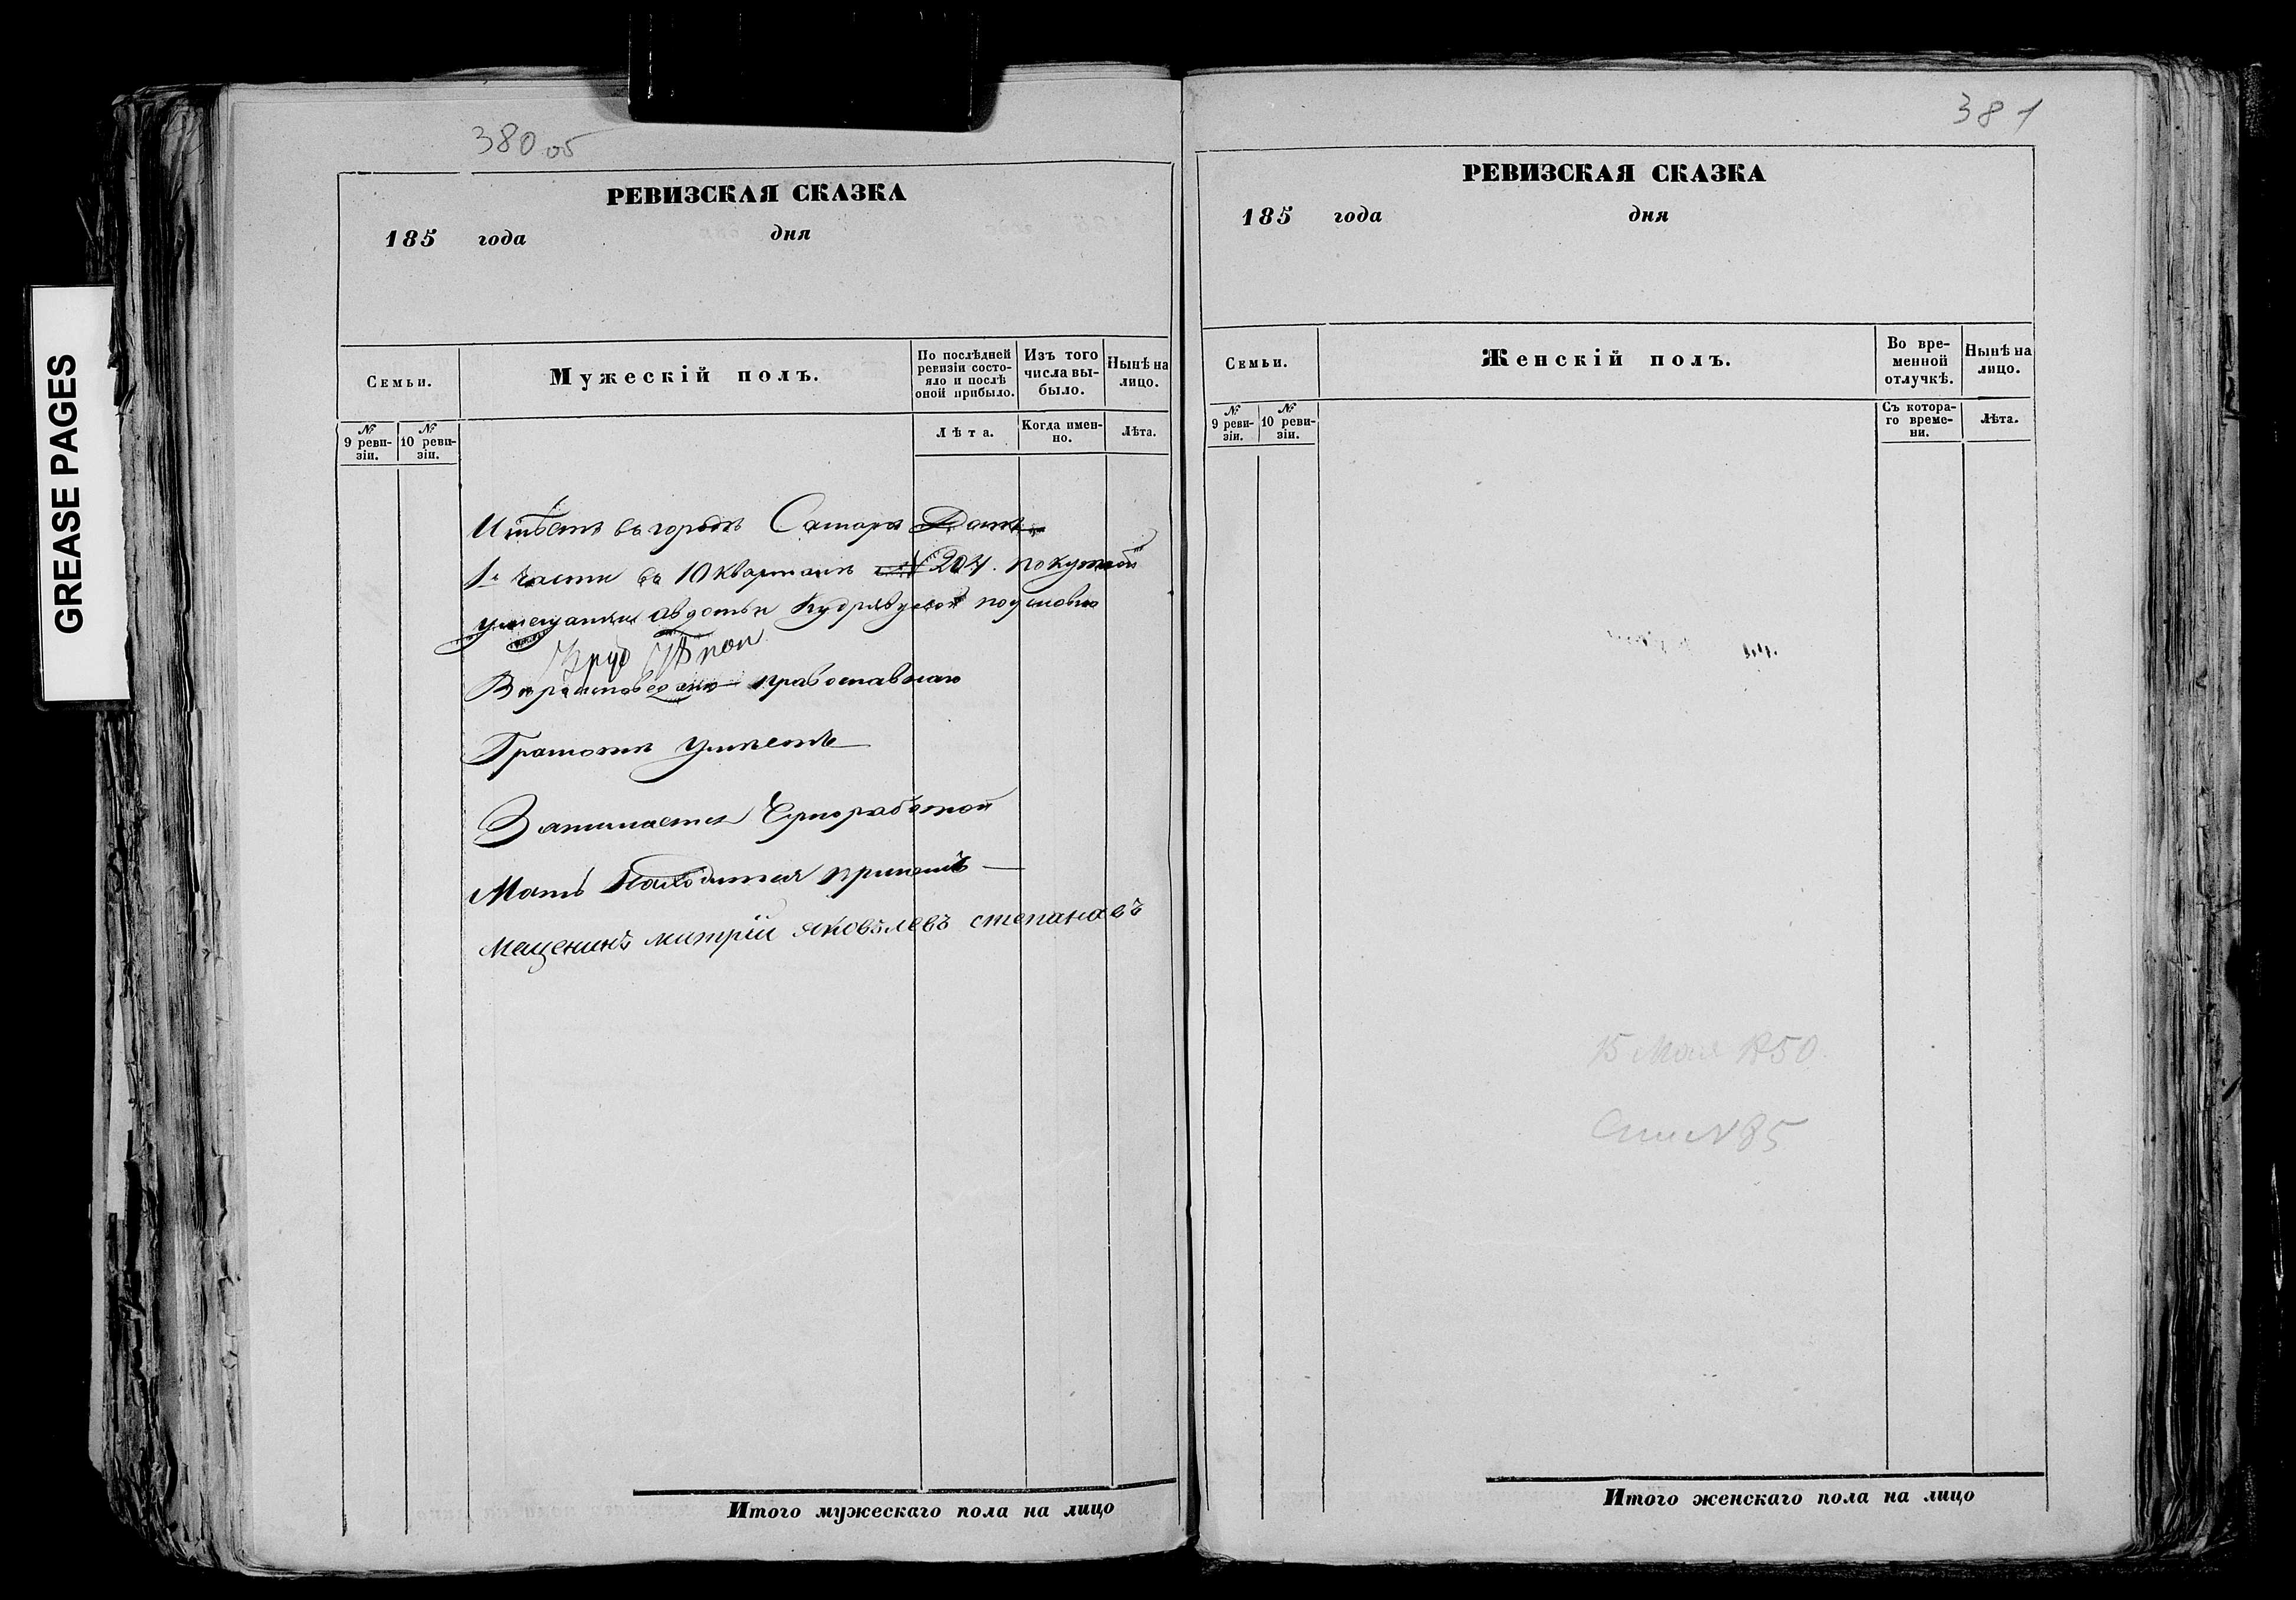 GREASE PAGES
380 об
РЕВИЗСКАЯ СКАЗКА
185 года дня
Семьи.
Мужескій полъ.
По послѣдней ревизіи состояло и послѣ оной прибыло.
Изъ того числа выбыло.
Нынѣ на лицо.
№ 9 ревизіи.
№ 10 ревизіи.
Лѣта.
Когда именно.
Лѣта.
Имѣетъ въ городѣ Самаре Домъ
1й части въ 10 кварталѣ № 204. покупной
умещанки авдотьи Кудрявцевой
Вѣроисповеданию православнаго
Грамотѣ умѣетъ
Занимается Черноработой
Мать находится примнѣ
Мещенинъ митрій яковълевъ степанавъ
Итого мужескаго пола на лицо
381
РЕВИЗСКАЯ СКАЗКА
185 года дня
Семьи.
Женскій полъ.
Во временной отлучкѣ.
Нынѣ на лицо.
№ 9 ревизіи.
№ 10 ревизіи.
Съ котораго времени.
Лѣта.
15 Мая 1850
85
Итого женскаго пола на лицо